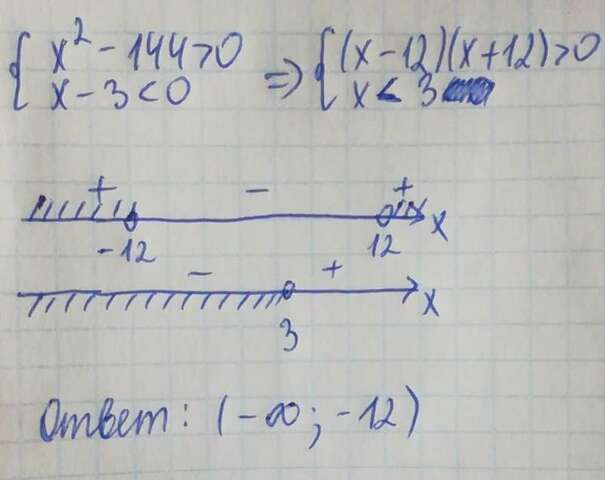 { x² - 144 > 0 => { (x - 12)(x + 12) > 0
x - 3 < 0 x < 3
+ - +
-12 12 x
- +
3 x
Ответ: (-∞; -12)